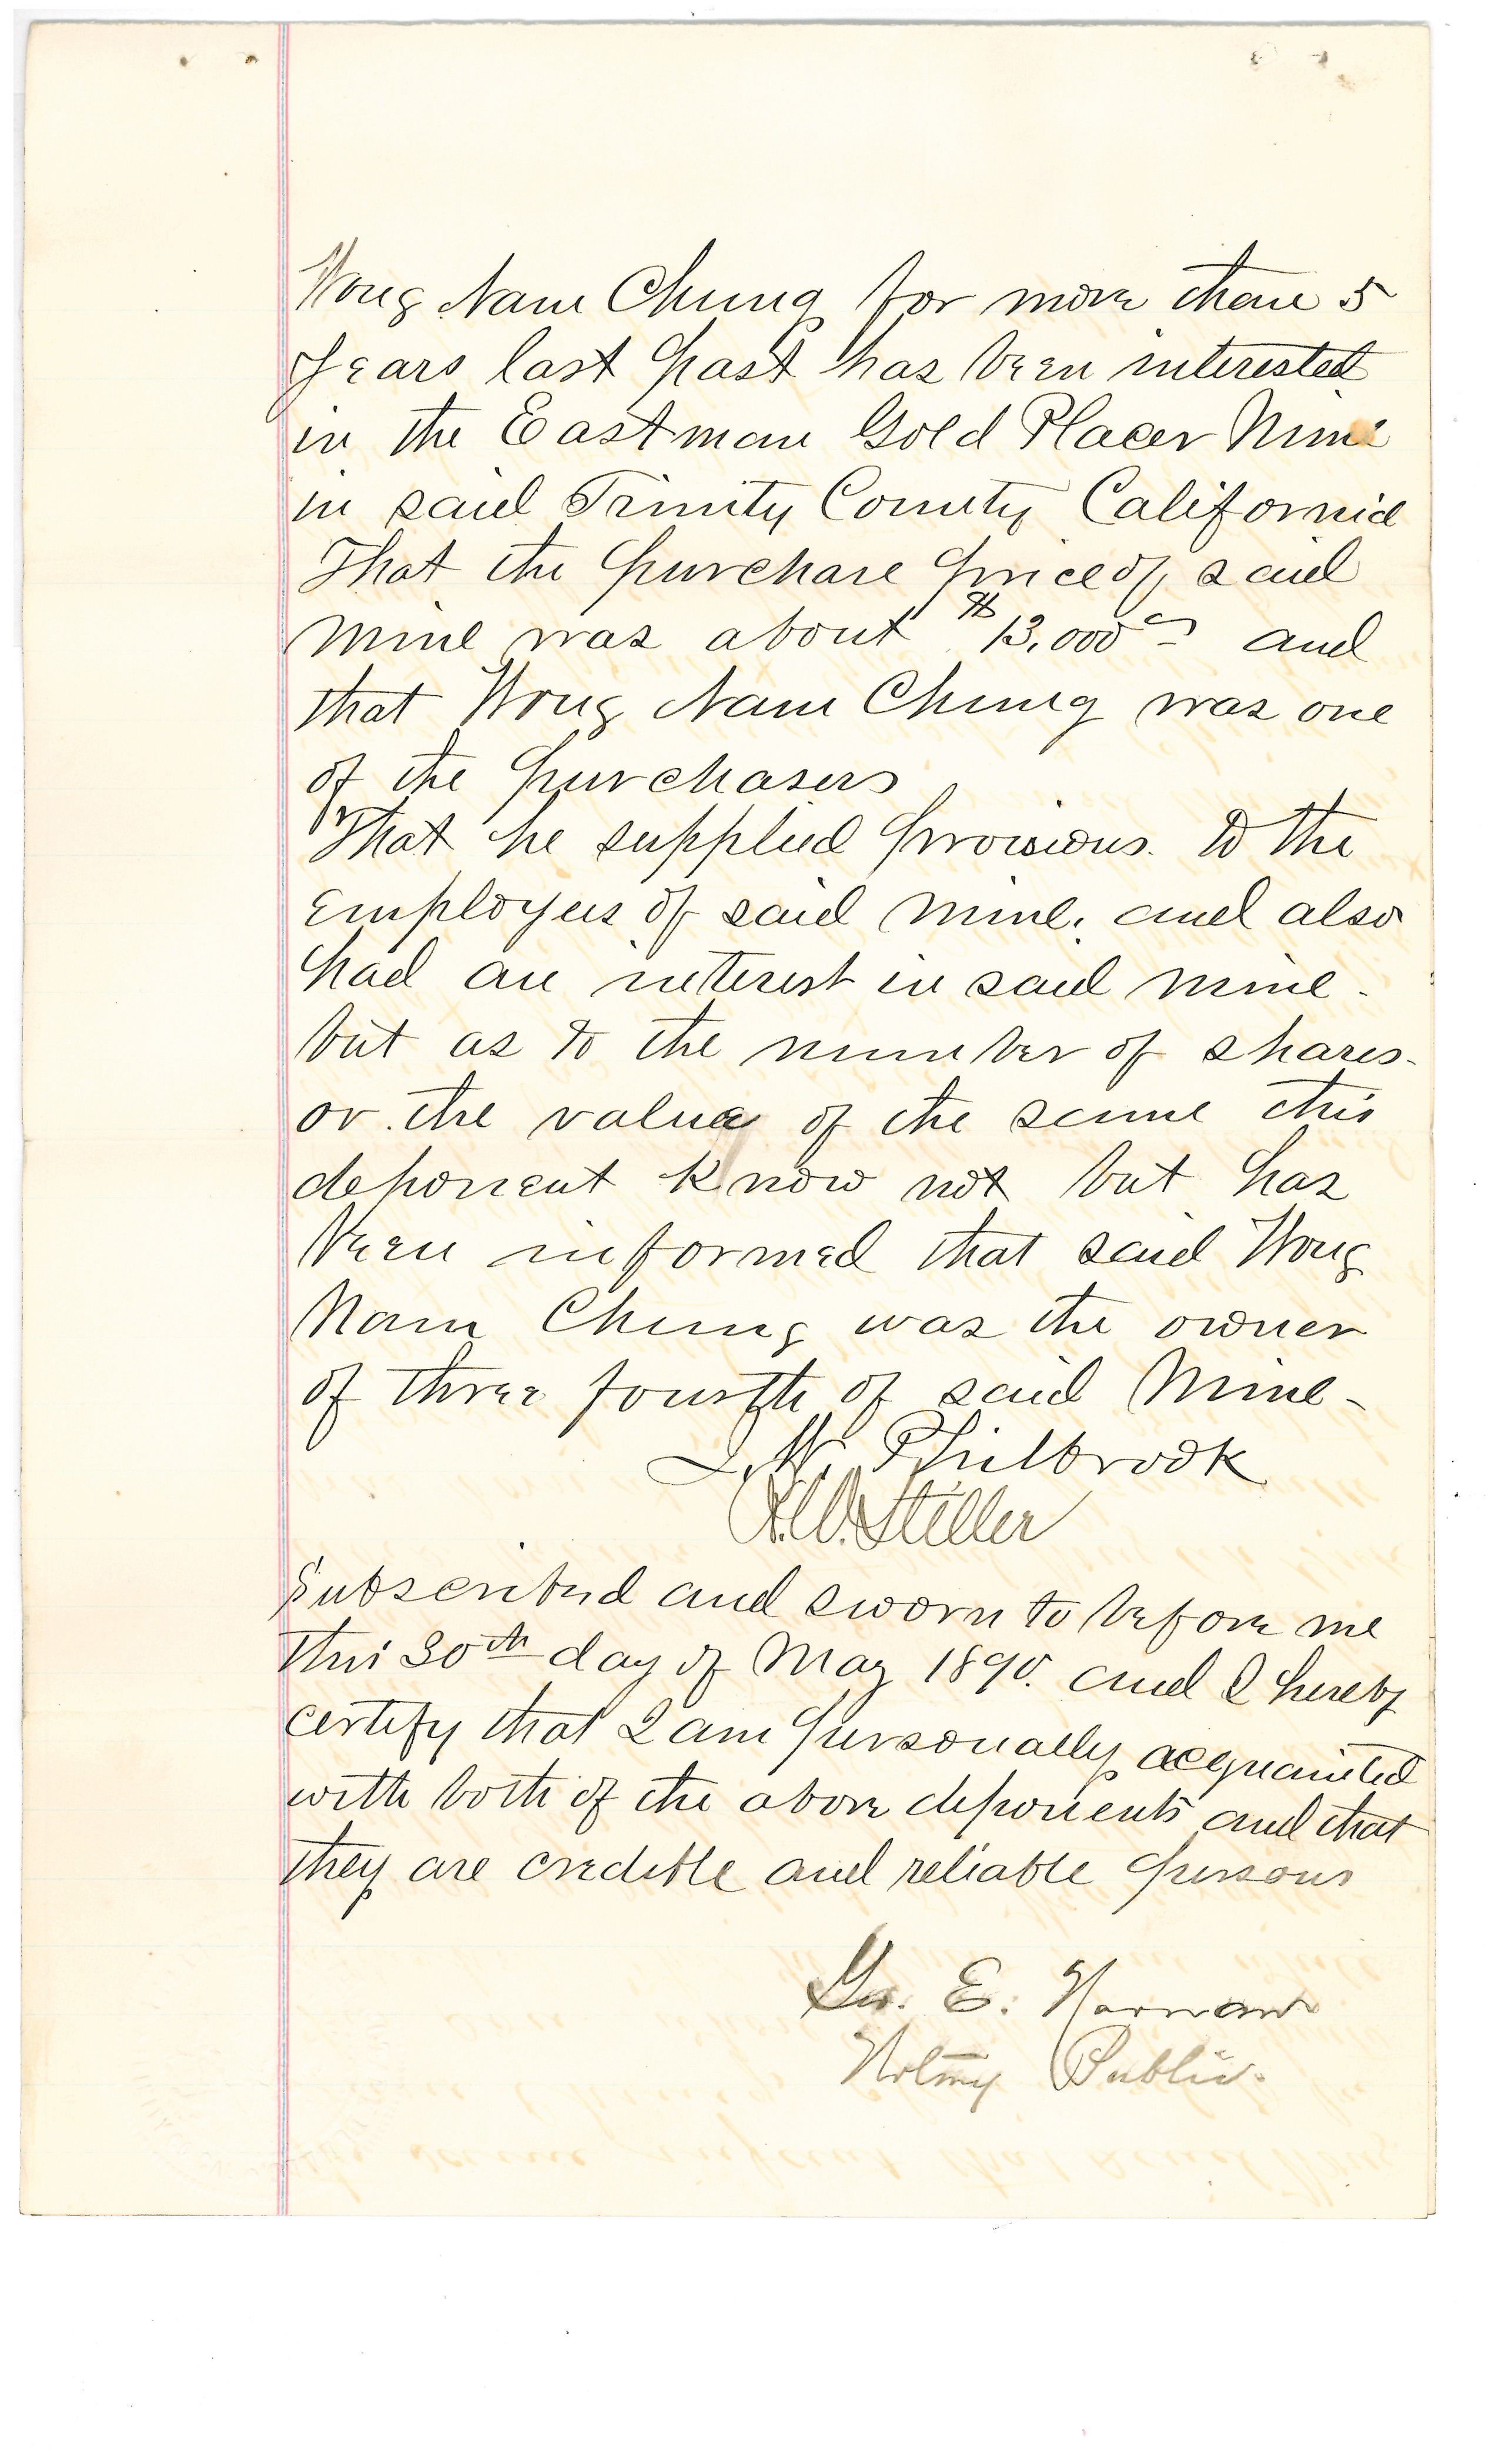 Wong Nam Chung for more than 5
years last past has been interested
in the Eastman Gold Placer Mine
in said Trinity County California
That the purchase price of said
mine was about $13,000 and
that Wong Nam Chung was one
of the purchasers
That he supplied provisions to the
employees of said mine. and also
had an interest in said mine -
but as to the number of shares -
or the value of the same this
deponent know not but has
been informed that said Wong
Nam Chung was the owner
of three fourth of said Mine -
Philbrook
Stiller
Subscribed and sworn to before me
this 30th day of May 1890. and I hereby
certify that I am personally acquainted
with both of the above deponents and that
they are credible and reliable persons
Geo. E.
Notary Public.